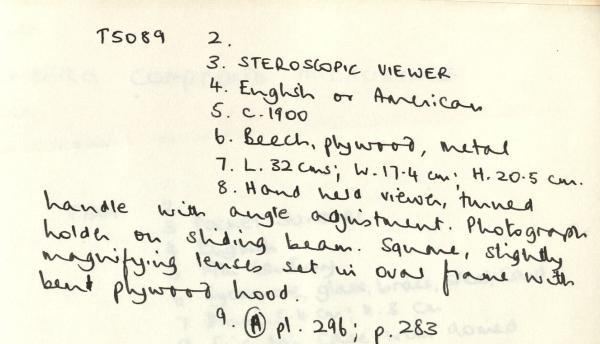 TS089 2.
3. STEROSCOPIC VIEWER
4. English or American
5. c.1900
6. Beech, plywood, metal
7. L. 32 cms; W. 17.4 cm; H. 20.5 cm.
8. Hand held viewer, turned
handle with angle adjustment. Photograph
holder on sliding beam. Square, slightly
magnifying lenses set in oval frame with
bent plywood hood.
9. (A) pl. 296; p. 283